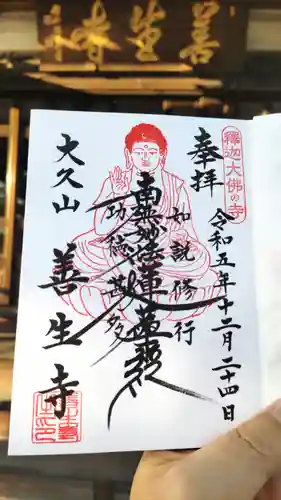 釋迦大佛の寺
奉拝
令和五年十二月二十四日
如説修行
南無妙法蓮華経
功徳甚多
大久山
善生寺